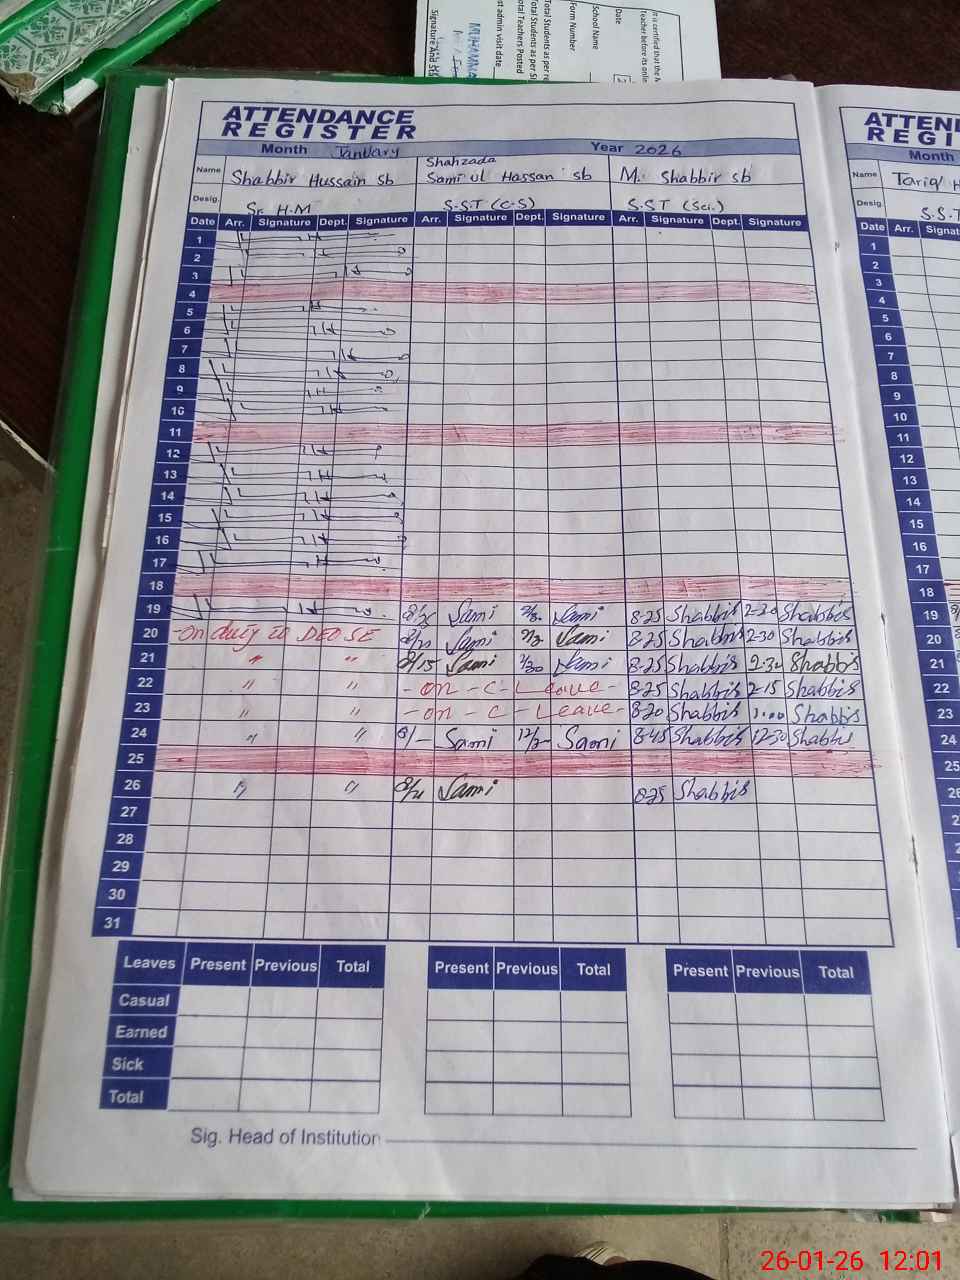 It is certified that the
Teacher before its onlin
Date
School Name
Form Number
Total Students as per re
Total Students as per SI
Total Teachers Posted
st admin visit date
MUHAMMA
Signature And St
ATTENDANCE
REGISTER
Month January Year 2026
Name Shabbir Hussain sb Shahzada Sami ul Hassan sb M. Shabbir sb
Desig. Sr. H.M S.S.T (C.S) S.S.T (Sci.)
Date Arr. Signature Dept. Signature Arr. Signature Dept. Signature Arr. Signature Dept. Signature
1
2
3
4
5
6
7
8
9
10
11
12
13
14
15
16
17
18
19 Sami Sami 8-25 Shabbir 2-30 Shabbir
20 On duty to DEO SE Sami Sami 8-25 Shabbir 2-30 Shabbir
21 〃 〃 8/15 Sami Sami 8-25 Shabbir Shabbir
22 〃 〃 - on - C - Leave - 8-25 Shabbir 2-15 Shabbir
23 〃 〃 - on - C - Leave - 8-20 Shabbir 1-00 Shabbir
24 〃 〃 8/- Sami Sami 8-45 Shabbir 12-30 Shabbir
25
26 〃 〃 Sami 8-25 Shabbir
27
28
29
30
31
Leaves Present Previous Total Present Previous Total Present Previous Total
Casual
Earned
Sick
Total
Sig. Head of Institution
ATTEN
REGI
Month
Name Tariq H
Desig. S.S.T
Date Arr. Signat
1
2
3
4
5
6
7
8
9
10
11
12
13
14
15
16
17
18
19
20
21
22
23
24
25
26-01-26 12:01